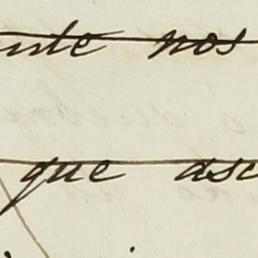 nte nos
que asc